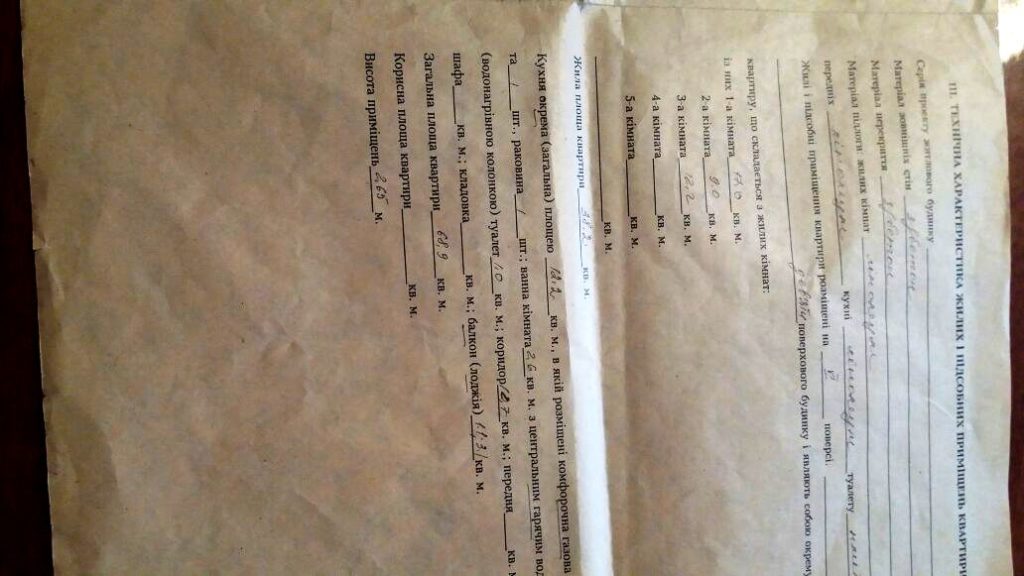 III. ТЕХНІЧНА ХАРАКТЕРИСТИКА ЖИЛИХ І ПІДСОБНИХ ПРИМІЩЕНЬ КВАРТИРИ
Серія проекту житлового будинку
Матеріал зовнішніх стін бетон
Матеріал перекриття бетон
Матеріал підлоги жилих кімнат линолеум
передніх линолеум кухні линолеум туалету
Жилі і підсобні приміщення квартири розміщені на V поверсі
девяти поверхового будинку і являють собою окрему
квартиру, що складається з жилих кімнат:
із них 1-а кімната 17.0 кв. м.
2-а кімната 9.0 кв. м.
3-а кімната 12.2 кв. м.
4-а кімната кв. м.
5-а кімната кв. м.
кв. м.
Жила площа квартири 38.2 кв. м.
Кухня окрема (загальна) площею 12.2 кв. м., в якій розміщені комфорочна газова
та 1 шт., раковина 1 шт.; ванна кімната 2.6 кв. м. з центральним гарячим вод
(водонагрівною колонкою) туалет 1.0 кв. м.; коридор 12.7 кв. м.; передня кв. м
шафа кв. м.; кладовка кв. м.; балкон (лоджія) кв. м.
Загальна площа квартири 68.9 кв. м.
Корисна площа квартири кв. м.
Висота приміщень 2,65 м.